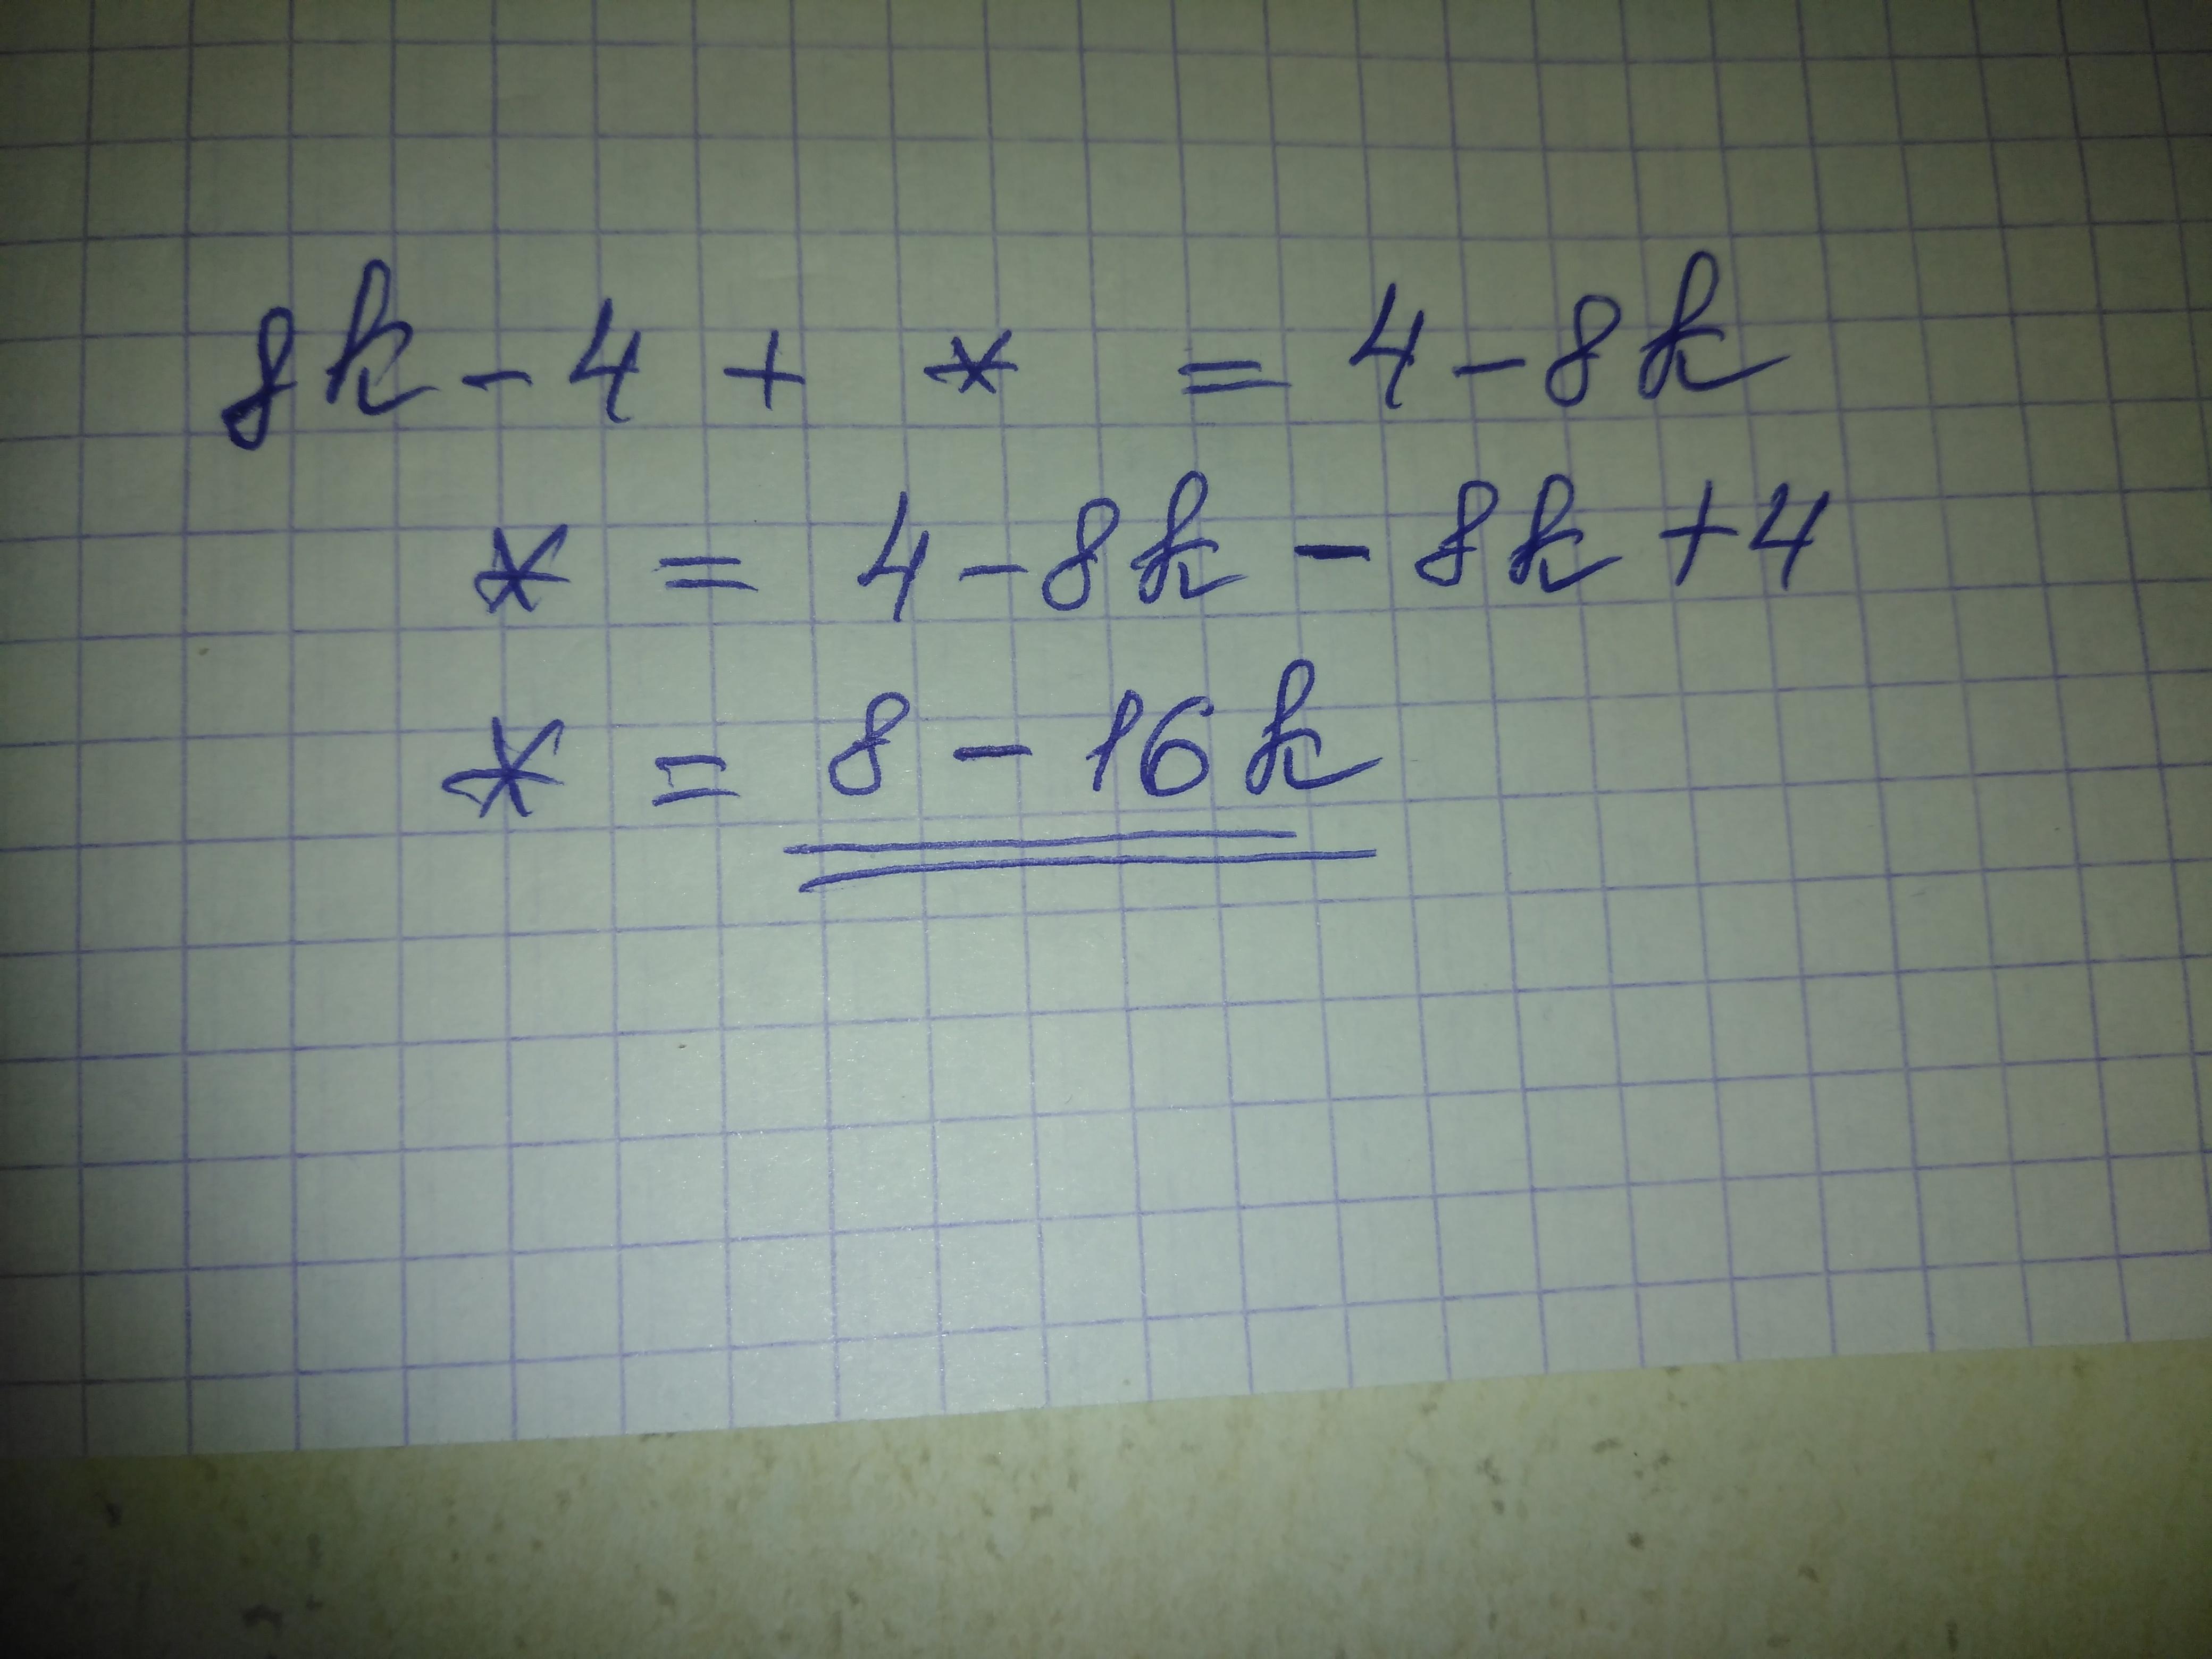 8k - 4 + * = 4 - 8k
* = 4 - 8k - 8k + 4
* = 8 - 16k